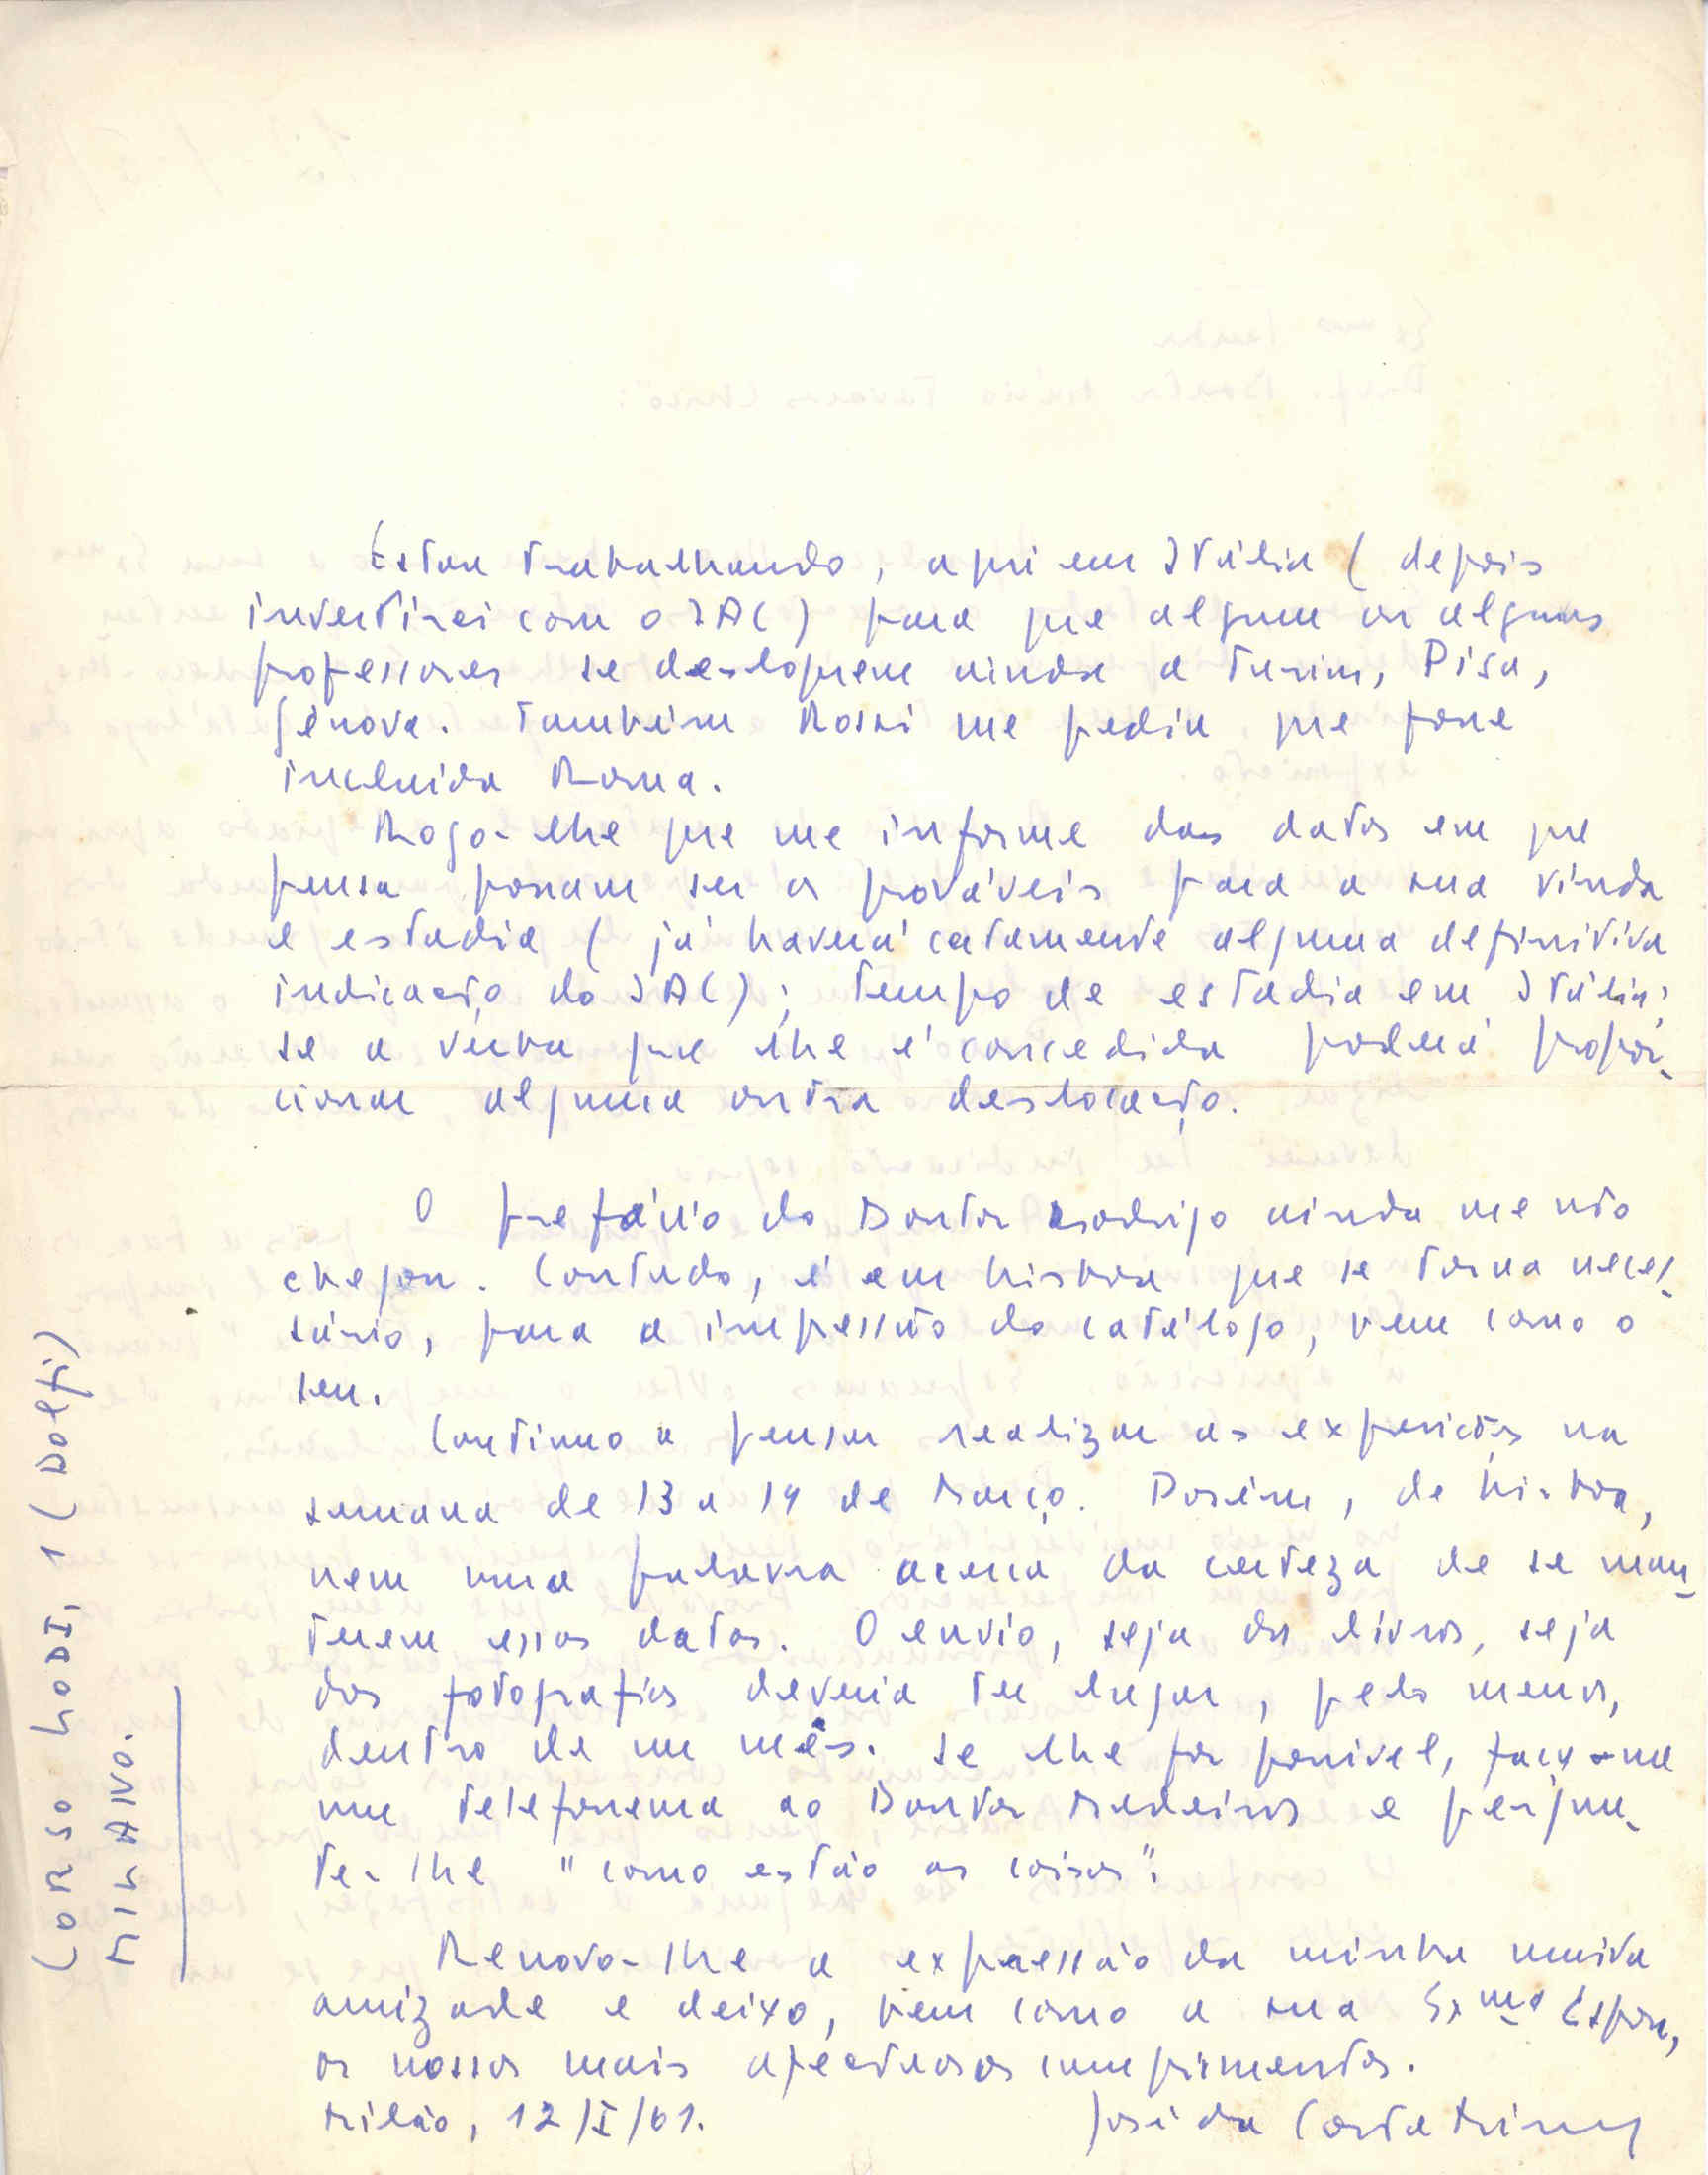 Estou trabalhando, aqui em Itália (depois
investirei com o IAC) para que algum ou alguns
professores se desloquem ainda a Turim, Pisa,
Génova. Também Rossi me pediu que fosse
incluida Roma.
Rogo-lhe que me informe das datas em que
pensa possam ser as prováveis para a sua vinda
e estadia (já haverá certamente alguma definitiva
indicação do IAC); tempo de estadia em Itália;
se a verba que lhe é concedida poderá propor-
cionar alguma outra deslocação.
O prefácio do Doutor Rodrigo ainda me não
chegou. Contudo, é em Lisboa que se torna neces-
sário, para a impressão do catálogo, bem como o
seu.
Continuo a pensar realizar as exposições na
semana de 13 a 19 de Março. Porém, de Lisboa,
nem uma palavra acerca da certeza de se man-
terem essas datas. O envio, seja dos livros, seja
das fotografias deveria ter lugar, pelo menos,
dentro de um mês. Se lhe for possivel, faça-me
um telefonema ao Doutor Medeiros e pergun-
te-lhe "como estão as coisas".
Renovo-lhe a expressão da minha muita
amizade e deixo, bem como a sua Exma Esposa,
os nossos mais afectuosos cumprimentos.
Milão, 12/I/61.
José da Costa Miranda
CORSO LODI, 1 (Dolfi)
MILANO.